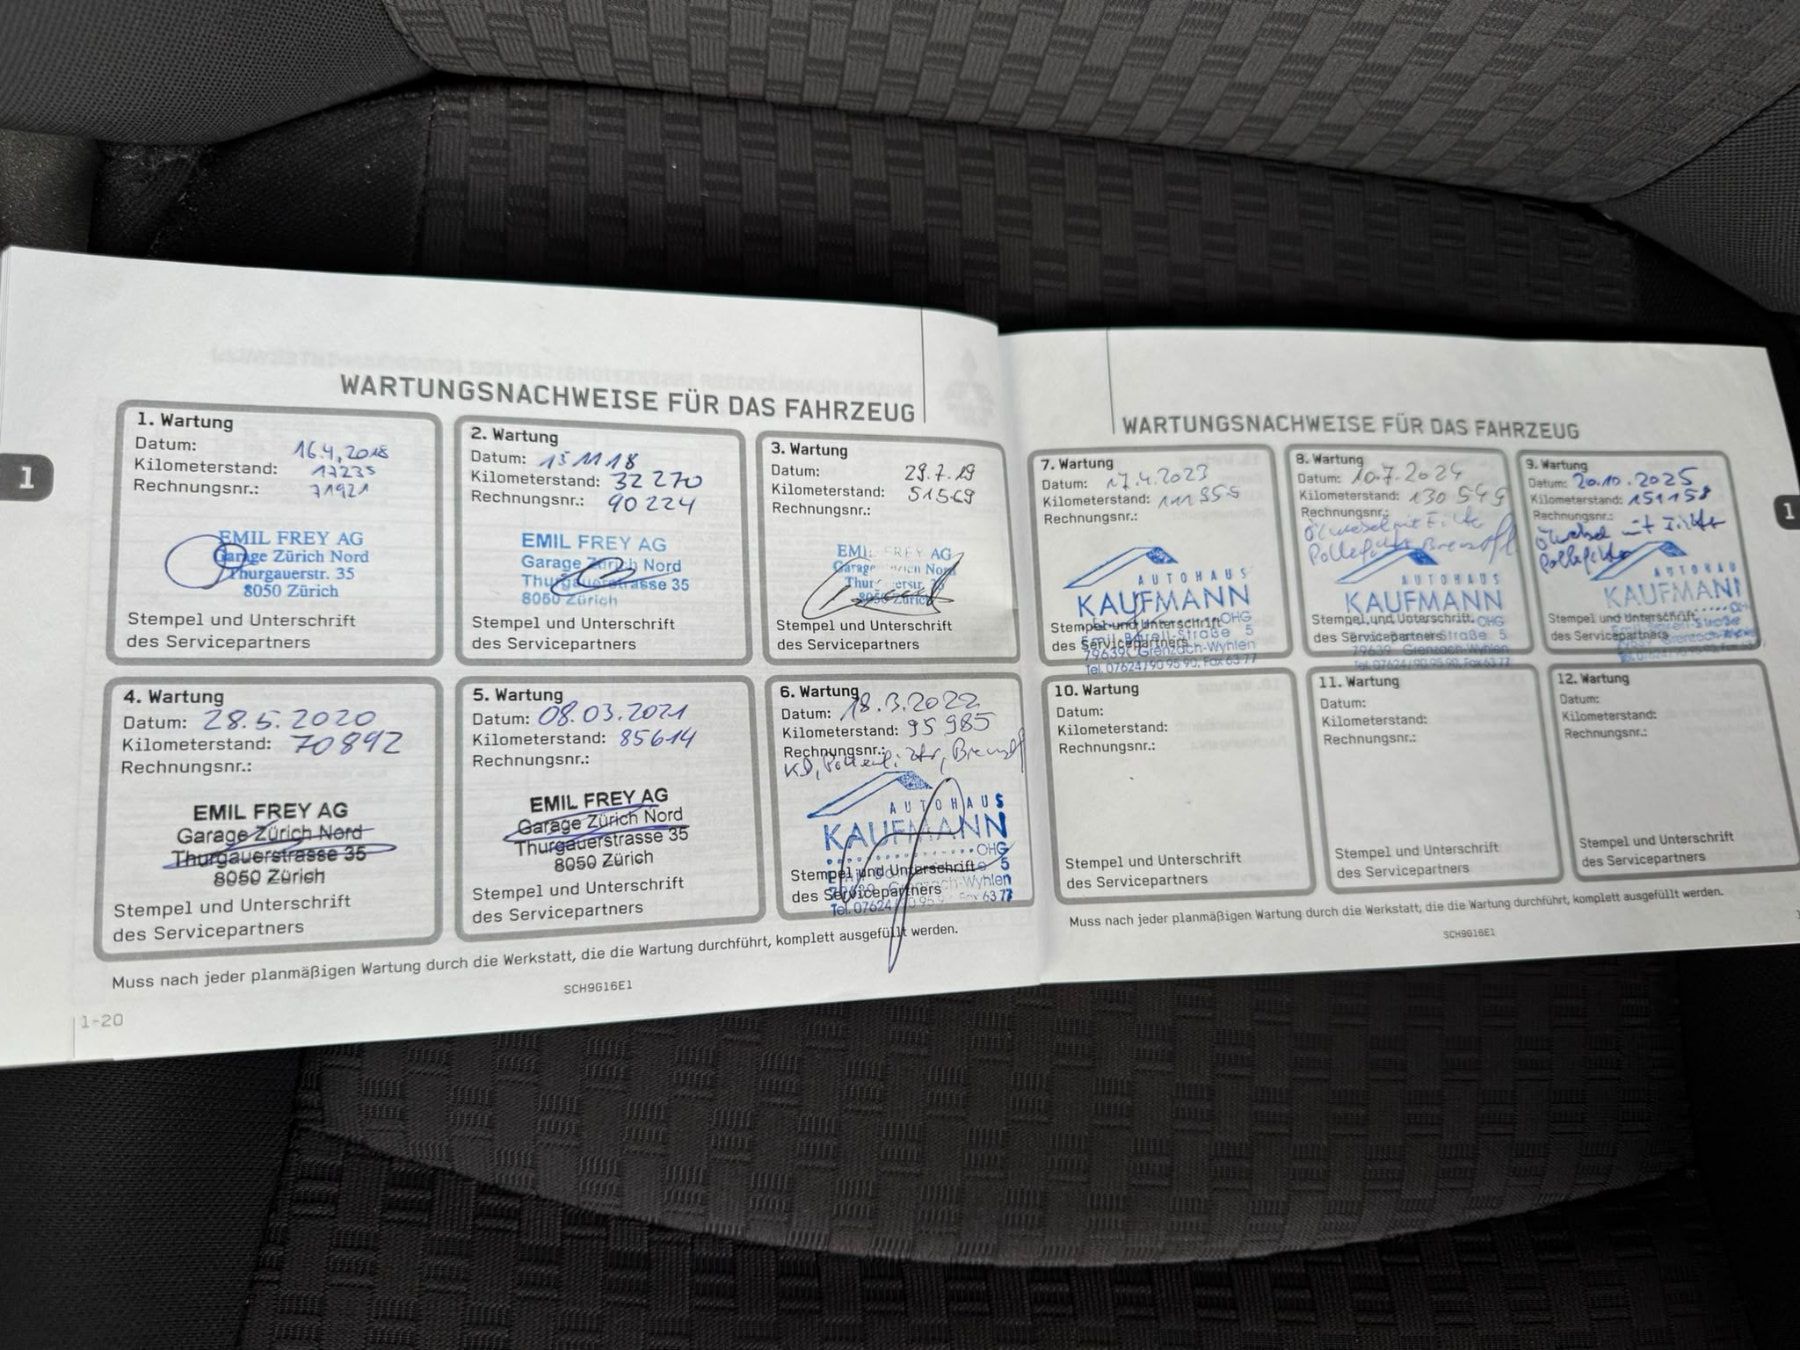 1
WARTUNGSNACHWEISE FÜR DAS FAHRZEUG
1. Wartung
Datum: 16.4.2018
Kilometerstand: 17235
Rechnungsnr.: 71921
EMIL FREY AG
Garage Zürich Nord
Thurgauerstr. 35
8050 Zürich
Stempel und Unterschrift
des Servicepartners
2. Wartung
Datum: 151118
Kilometerstand: 32 270
Rechnungsnr.: 90224
EMIL FREY AG
Garage Zürich Nord
Thurgauerstrasse 35
8050 Zürich
Stempel und Unterschrift
des Servicepartners
3. Wartung
Datum: 29.7.19
Kilometerstand: 51569
Rechnungsnr.:
EMIL FREY AG
Garage Zürich Nord
Thurgauerstr. 35
8050 Zürich
Stempel und Unterschrift
des Servicepartners
4. Wartung
Datum: 28.5.2020
Kilometerstand: 70892
Rechnungsnr.:
EMIL FREY AG
Garage Zürich Nord
Thurgauerstrasse 35
8050 Zürich
Stempel und Unterschrift
des Servicepartners
5. Wartung
Datum: 08.03.2021
Kilometerstand: 85614
Rechnungsnr.:
EMIL FREY AG
Garage Zürich Nord
Thurgauerstrasse 35
8050 Zürich
Stempel und Unterschrift
des Servicepartners
6. Wartung
Datum: 18.3.2022
Kilometerstand: 95 985
Rechnungsnr.:
KD,
AUTOHAUS
KAUFMANN
OHG
Stempel und Unterschrift 5
des Servicepartners
79639 Grenzach-Wyhlen
Tel. 07624/90 95 90, Fax 63 77
Muss nach jeder planmäßigen Wartung durch die Werkstatt, die die Wartung durchführt, komplett ausgefüllt werden.
SCH9G16E1
1-20
WARTUNGSNACHWEISE FÜR DAS FAHRZEUG
1
7. Wartung
Datum: 17.4.2023
Kilometerstand:
Rechnungsnr.:
AUTOHAUS
KAUFMANN
OHG
Stempel und Unterschrift
Emil-Barell-Straße 5
des Servicepartners
79639 Grenzach-Wyhlen
Tel. 07624/90 95 90, Fax 63 77
8. Wartung
Datum: 10.7.2024
Kilometerstand: 130 545
Rechnungsnr.:
Ölwechsel mit Filter
AUTOHAUS
KAUFMANN
OHG
Stempel und Unterschrift
des Servicepartners Straße 5
79639 Grenzach-Wyhlen
Tel. 07624/90 95 90, Fax 63 77
9. Wartung
Datum: 20.10.2025
Kilometerstand: 151158
Rechnungsnr.:
Ölwechsel mit Filter
Pollenfilter
AUTOHAUS
KAUFMANN
Stempel und Unterschrift
des Servicepartners
10. Wartung
Datum:
Kilometerstand:
Rechnungsnr.:
Stempel und Unterschrift
des Servicepartners
11. Wartung
Datum:
Kilometerstand:
Rechnungsnr.:
Stempel und Unterschrift
des Servicepartners
12. Wartung
Datum:
Kilometerstand:
Rechnungsnr.:
Stempel und Unterschrift
des Servicepartners
Muss nach jeder planmäßigen Wartung durch die Werkstatt, die die Wartung durchführt, komplett ausgefüllt werden.
SCH9G16E1